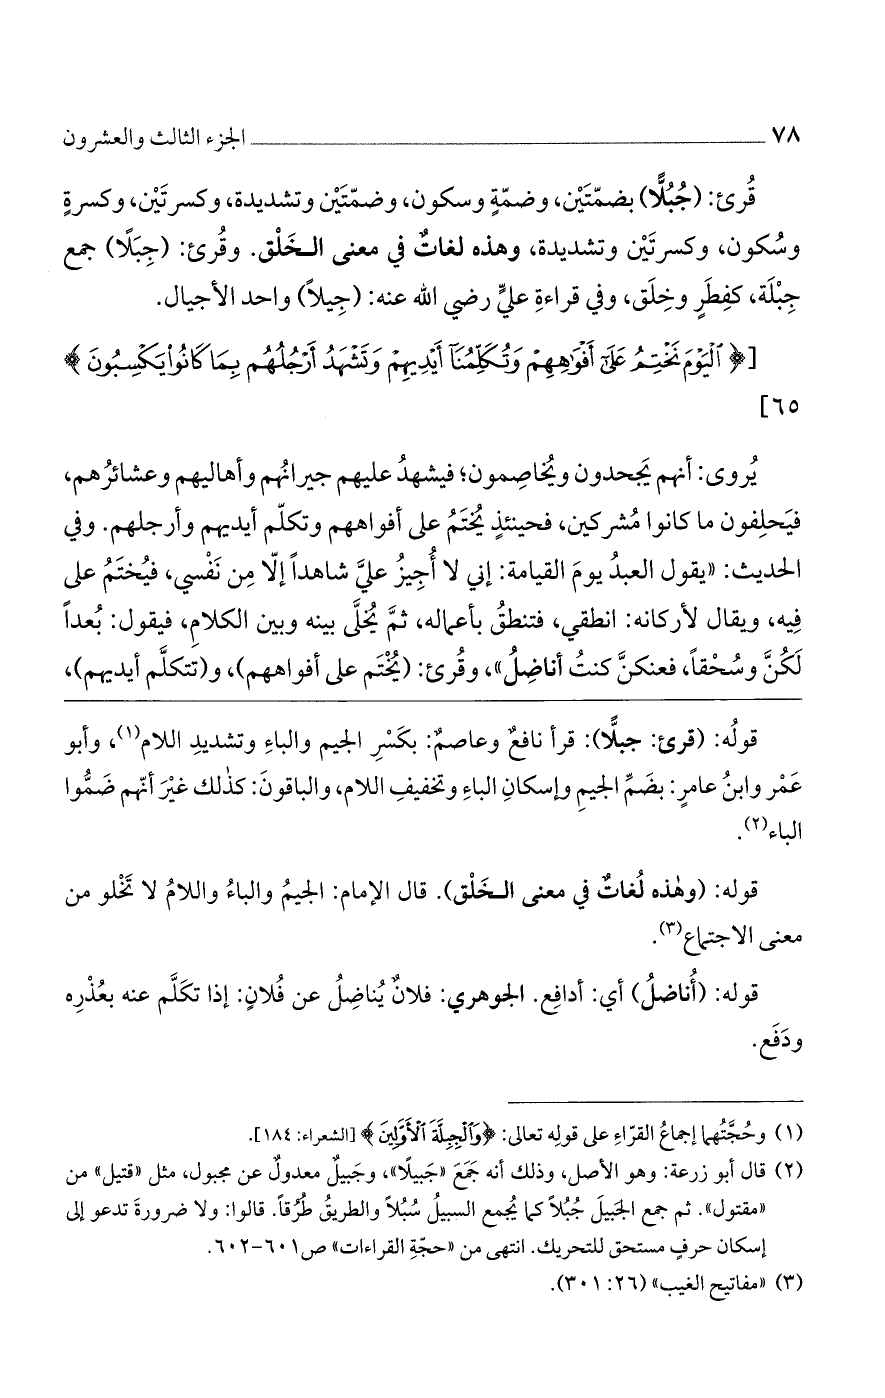 ٧٨ ـــــــــــــــــــــــــــــــــــــــ الجزء الثالث والعشرون
قُرئ: (جُبُلًّا) بضمّتَيْن، وضمّةٍ وسكون، وضمّتَيْن وتشديدة، وكسرتَيْن، وكسرةٍ
وسُكون، وكسرتَيْن وتشديدة، وهذه لغاتٌ في معنى الـخَلْق. وقُرئ: (جِبَلًا) جمع
جِبْلَة، كفِطَرٍ وخِلَق، وفي قراءةِ عليٍّ رضي الله عنه: (جِيلاً) واحد الأجيال.
[﴿ ٱلْيَوْمَ نَخْتِمُ عَلَىٰٓ أَفْوَٰهِهِمْ وَتُكَلِّمُنَآ أَيْدِيهِمْ وَتَشْهَدُ أَرْجُلُهُم بِمَا كَانُوا۟ يَكْسِبُونَ ﴾
٦٥]
يُروى: أنهم يَجحدون ويُخاصِمون؛ فيشهدُ عليهم جيرانُهم وأهاليهم وعشائرُهم،
فيَحلِفون ما كانوا مُشركين، فحينئذٍ يُختَمُ على أفواههم وتكلّم أيديهم وأرجلهم. وفي
الحديث: «يقول العبدُ يومَ القيامة: إني لا أُجيزُ عليَّ شاهداً إلّا مِن نَفْسي، فيُختَمُ على
فِيه، ويقال لأركانه: انطقي، فتنطقُ بأعماله، ثمَّ يُخلَّى بينه وبين الكلامِ، فيقول: بُعداً
لَكُنَّ وسُحْقاً، فعنكنَّ كنتُ أناضِلُ»، وقُرئ: (يُخْتَم على أفواههم)، و(تتكلَّم أيديهم)،
قولُه: (قرئ: جبلًّا): قرأ نافعٌ وعاصمٌ: بكَسْرِ الجيم والباءِ وتشديدِ اللام(١)، وأبو
عَمْر وابنُ عامرٍ: بضَمِّ الجيمِ وإسكانِ الباءِ وتخفيفِ اللام، والباقونَ: كذٰلك غيْرَ أنّهم ضَمُّوا
الباء(٢).
قوله: (وهٰذه لُغاتٌ في معنى الـخَلْق). قال الإمام: الجيمُ والباءُ واللامُ لا تَخْلو من
معنى الاجتماع(٣).
قوله: (أُناضلُ) أي: أدافِع. الجوهري: فلانٌ يُناضِلُ عن فُلانٍ: إذا تكَلَّم عنه بعُذْرِه
ودَفَع.
(١) وحُجَّتُهما إجماعُ القرّاءِ على قولِه تعالى: ﴿وَٱلْجِبِلَّةَ ٱلْأَوَّلِينَ﴾ [الشعراء: ١٨٤].
(٢) قال أبو زرعة: وهو الأصل، وذلك أنه جَمَعَ «جَبيلًا»، وجَبيلٌ معدولٌ عن مجبول، مثل «قتيل» من
«مقتول». ثم جمع الجَبيلَ جُبُلاً كما يُجمع السبيلُ سُبُلاً والطريقُ طُرُقاً. قالوا: ولا ضرورةَ تدعو إلى
إسكان حرفٍ مستحق للتحريك. انتهى من «حجّةِ القراءات» ص٦٠١-٦٠٢.
(٣) «مفاتيح الغيب» (٢٦: ٣٠١).